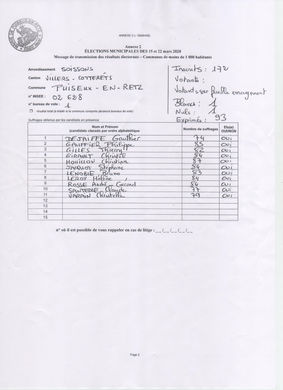 Annexe 2
ÉLECTIONS MUNICIPALES DES 15 et 22 mars 2020
Message de transmission des résultats électoraux – Communes de moins de 1 000 habitants
Arrondissement SOISSONS Inscrits : 172
Canton VILLERS - COTTERÊTS Votants :
Commune PUISEUX - EN - RETZ Votants sur feuille émargement
N° INSEE : 02 628 Blancs : 1
n° bureau de vote : 1 Nuls : 1
Exprimés : 93
Suffrages obtenus par les candidats en présence :
Nom et Prénom (candidats classés par ordre alphabétique) Nombre de suffrages Elu(e) OUI/NON
1 DEJAIFFE Gauthier 74 OUI
2 GAUFFIER Philippe 85 OUI
3 GILLES Thierry OUI
4 GIRARDT OUI
5 MOUILLON Christian OUI
6 Stéphane OUI
7 LENOBLE Bruno 83 OUI
8 LEROY Hélène 84 OUI
9 ROSSE André - Gérard 84 OUI
10 77 OUI
11 VARAIN 79 OUI
12
13
14
15
n° où il est possible de vous rappeler en cas de litige :
Page 2